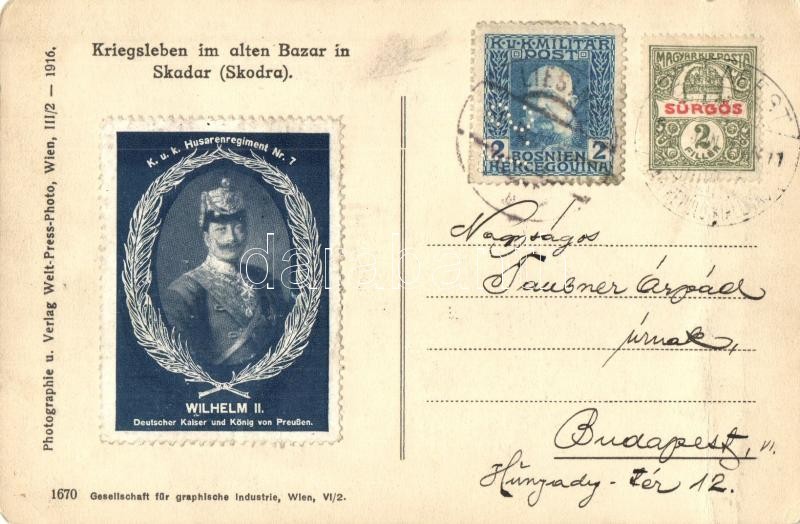 Kriegsleben im alten Bazar in
Skadar (Skodra).
Photographie u. Verlag Welt-Press-Photo, Wien, III/2 — 1916.
K. u. k. Husarenregiment Nr. 7
WILHELM II.
Deutscher Kaiser und König von Preußen.
1670 Gesellschaft für graphische Industrie, Wien, VI/2.
K.u.K.MILITÄR
POST
2 2
BOSNIEN
HERCEGOVINA
MAGYAR KIR. POSTA
SÜRGŐS
2
FILLÉR
Nagyságos
Tauszner Árpád
úrnak,
Budapest, VI.
Hunyady-tér 12.
darabanth